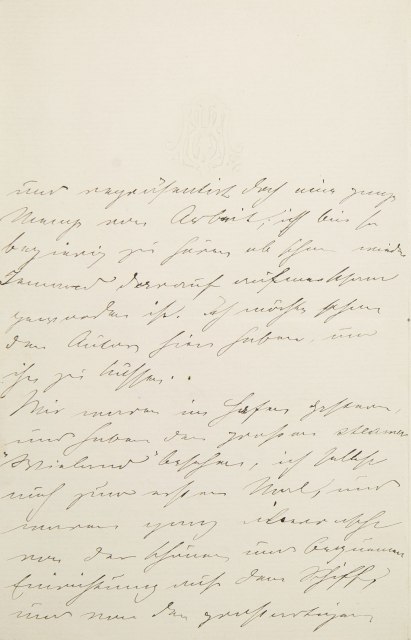 und repräsentirt doch eine ganze
Menge von Arbeit, ich bin so
begierig zu hören ob schon wieder
Jemand darauf aufmerksam
geworden ist. Ich möchte schon
den Autor hier haben, um
ihn zu küssen..
Wir waren im Hafen gestern,
und haben den grossen steamer
"Wieland" besehen, ich selbst
auch zum ersten Mal, und
waren ganz überrascht
von der schönen und bequemen
Einrichtung auf dem Schiff,
und von den grossartigen